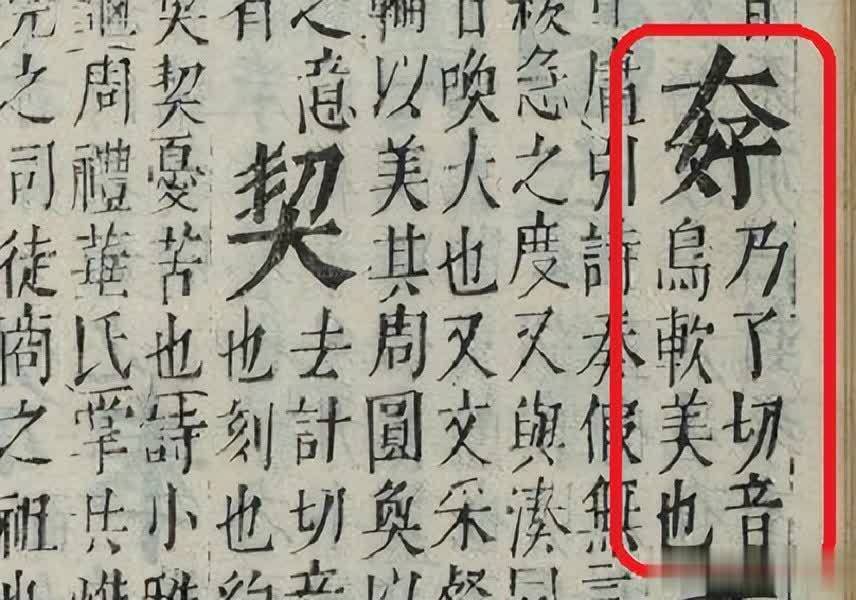 乃了切音
鳥軟美也
廣引詩奏假無言
急之度又與湊同
喚大也又文采
輪以美其周圓奐以
之意
契
去計切音
有
也刻也約
契契憂苦也詩小雅
周禮華氏掌共燋
堯之司徒商之祖也